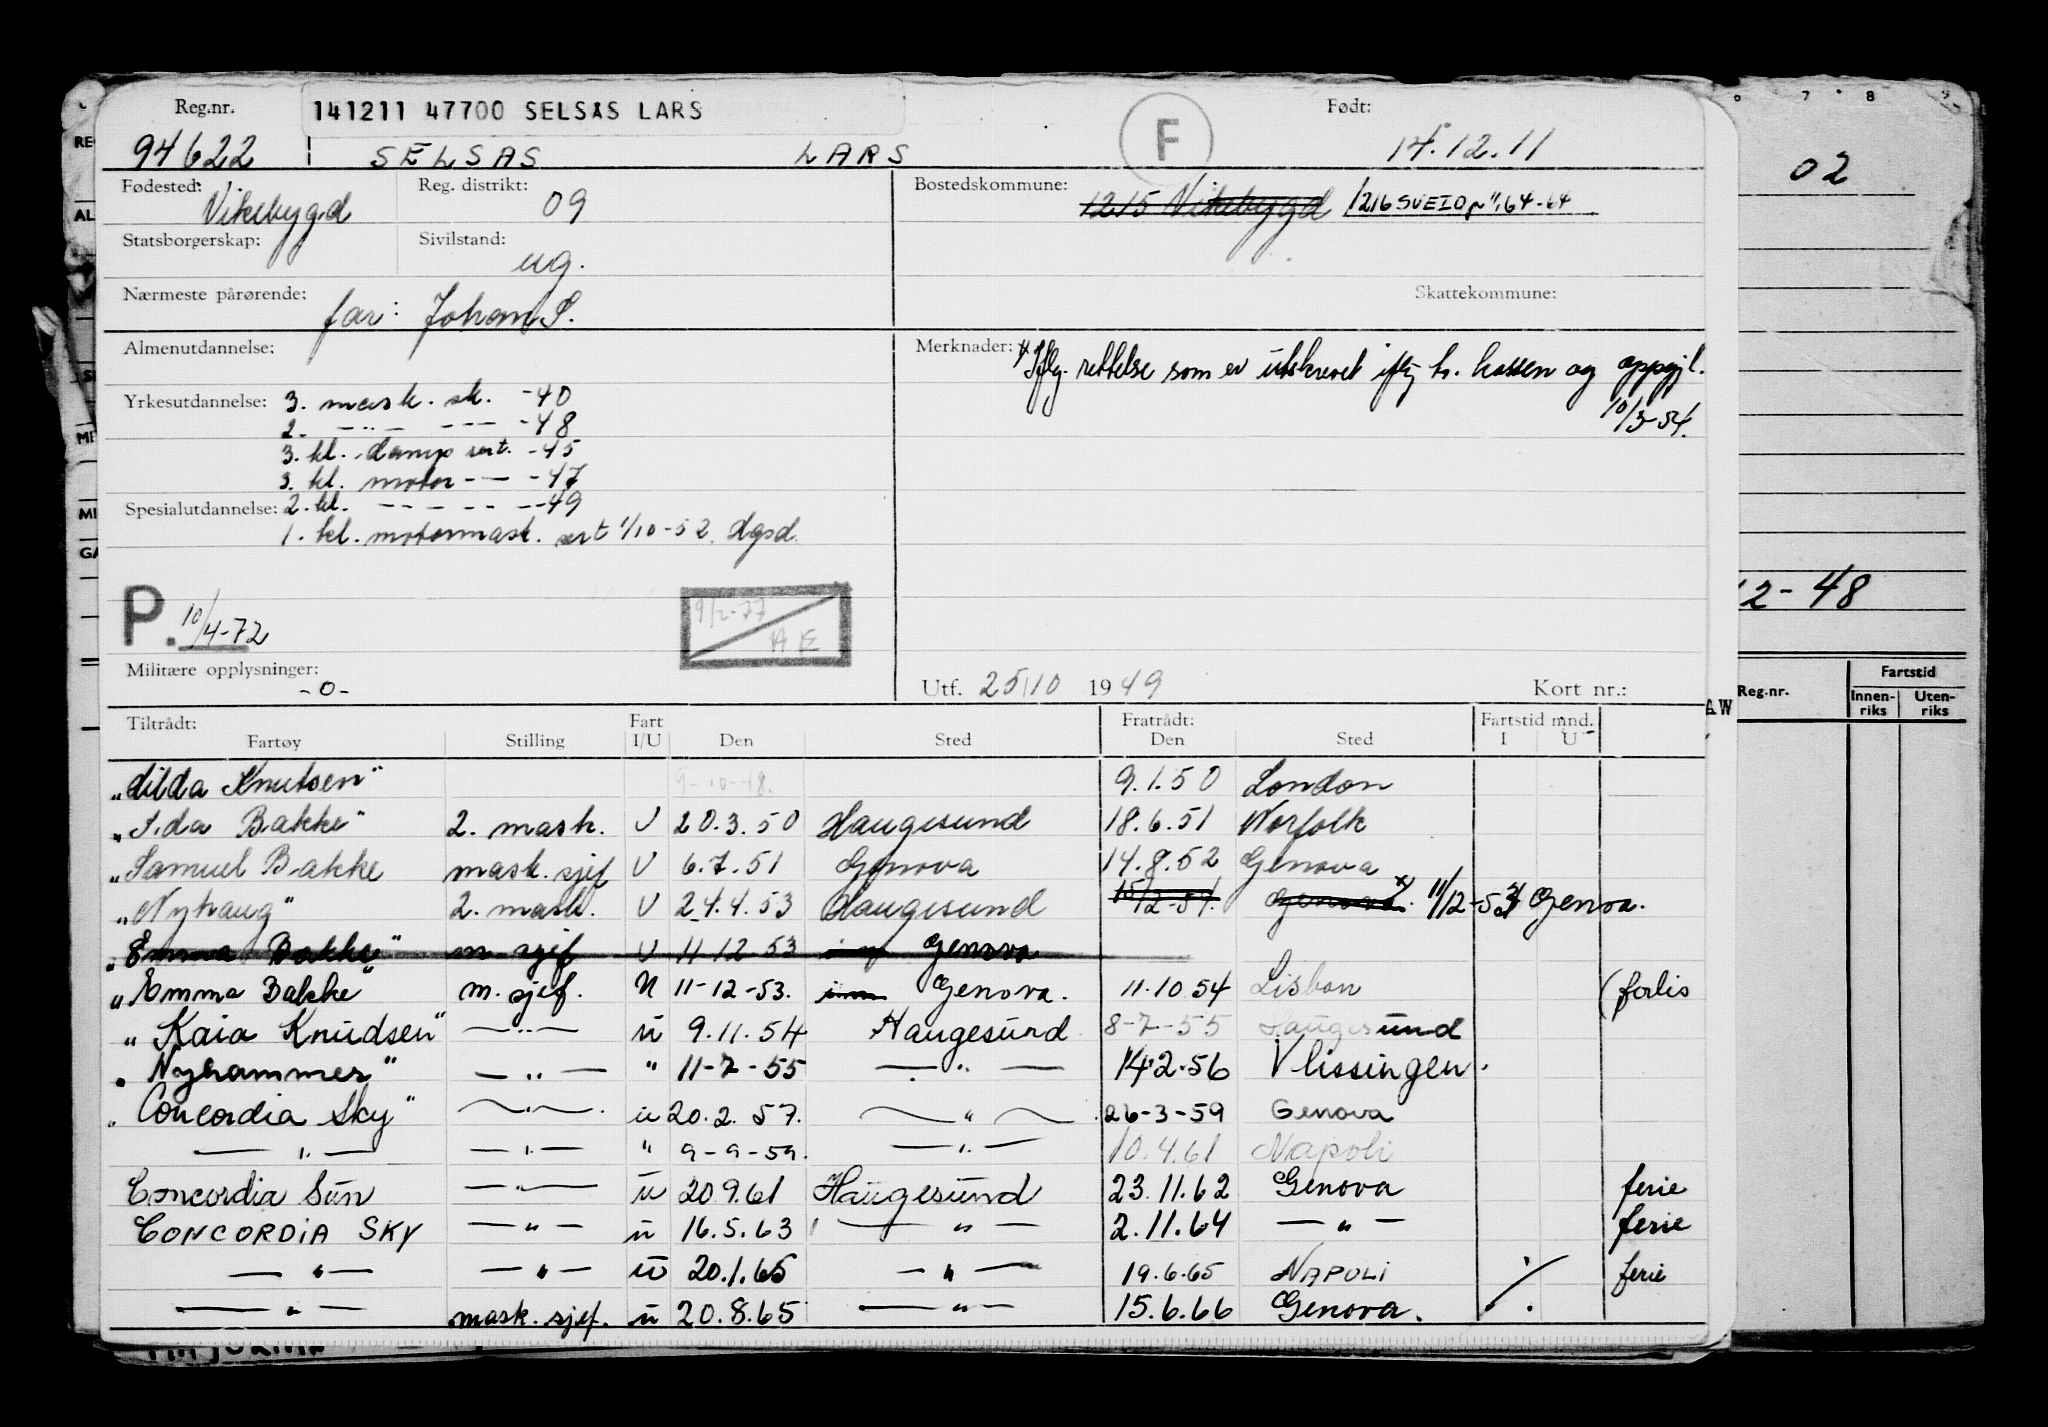 Reg.nr. 141211 47700 SELSÅS LARS F Født:
94622 SELSÅS LARS 14.12.11
Fødested: Vikebygd Reg. distrikt: 09 Bostedskommune: 1215 Vikebygd 1216 SVEIO
Statsborgerskap: Sivilstand: ug.
Nærmeste pårørende: far: Johan S. Skattekommune:
Almenutdannelse: Merknader: x) Iflg. rettelse som er utskrevet iflg og oppgjl.
10/3-54.
Yrkesutdannelse: 3. mask. sk. -40
2. -"- --- -48
3. kl. damp sert. -45
3. kl. motor -- - -47
Spesialutdannelse: 2. kl. - - - - - -49
1. kl. motormask. sert 1/10-52. Hgsd.
P. 10/4-72 9/2-77 AE
Militære opplysninger: -0- Utf. 25/10 1949 Kort nr.:
Tiltrådt: Fart Fratrådt: Fartstid mnd.
Fartøy Stilling I/U Den Sted Den Sted I U
"Hilda Knutsen" 9-10-48. 9.1.50 London
"Ida Bakke" 2. mask. U 20.3.50 Haugesund 18.6.51 Norfolk
"Samuel Bakke mask. sjef U 6.7.51 Genova 14.8.52 Genova
"Nyhaug" 2. mask. U 24.4.53 Haugesund 15/12-54. Genova. x) 11/12-53 Genova.
"Emma Bakke" m. sjef U 11-12-53 Genova
"Emma Bakke" m. sjef. U 11-12-53. Genova. 11.10.54 Lisbon (forlis
"Kaia Knudsen" -"- u 9.11.54 Haugesund 8-7-55 Haugesund
"Nyhammer" -"- " 11-7-55 -"- 14.2.56 Vlissingen.
"Concordia Sky" -"- u 20.2.57. -"- 26-3-59 Genova
-"- -"- " 9-9-59. -"- 10.4.61 Napoli
Concordia Sun -"- u 20.9.61 Haugesund 23.11.62 Genova ferie
CONCORDIA SKY -"- u 16.5.63 -"- 2.11.64 -"- ferie
-"- -"- u 20.1.65 -"- 19.6.65 NAPOLI ferie
-"- mask. sjef. u 20.8.65 -"- 15.6.66 Genova.
7 8
02
12-48
Reg.nr. Fartstid
Innen-riks Uten-riks
AW